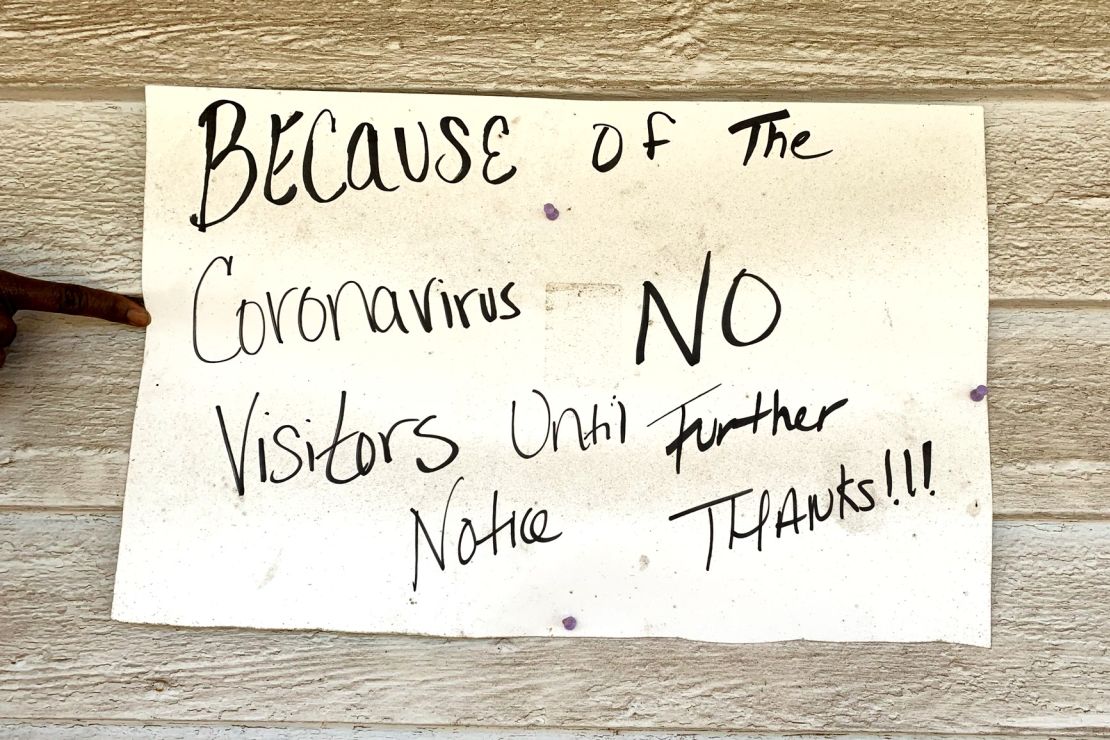 BECAUSE OF The
Coronavirus NO
Visitors Until Further
Notice THANKS!!!